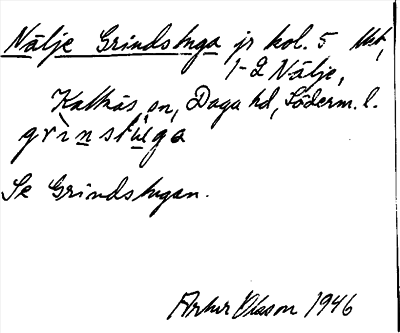 Nälje Grindstuga jr kol. 5
1-2 Nälje,
Kattnäs sn, Daga hd, Söderm. l.
grìnstu̇ga
Se Grindstugan.
Artur Olsson 1946